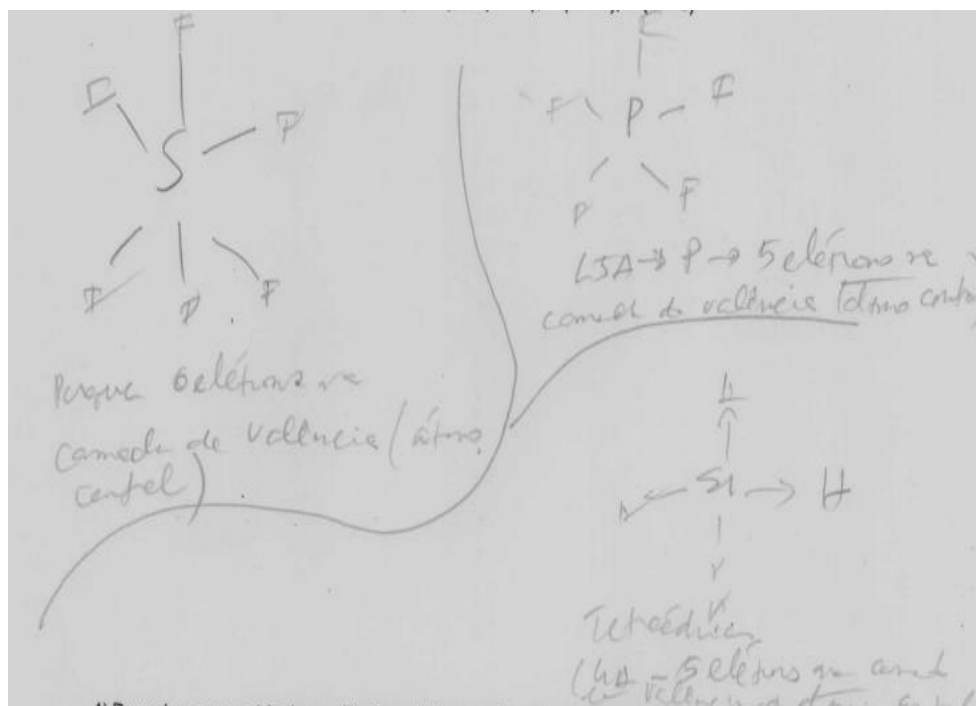 F
F
S
F
F
F
F
Porque 6 elétrons na
camada de valência (átomo
central)
F
F P F
F F
15A → P → 5 elétrons na
camada de valência (átomo
H
Si → H
Tetraédrica
(4A - 5 elétrons na camada
de valência